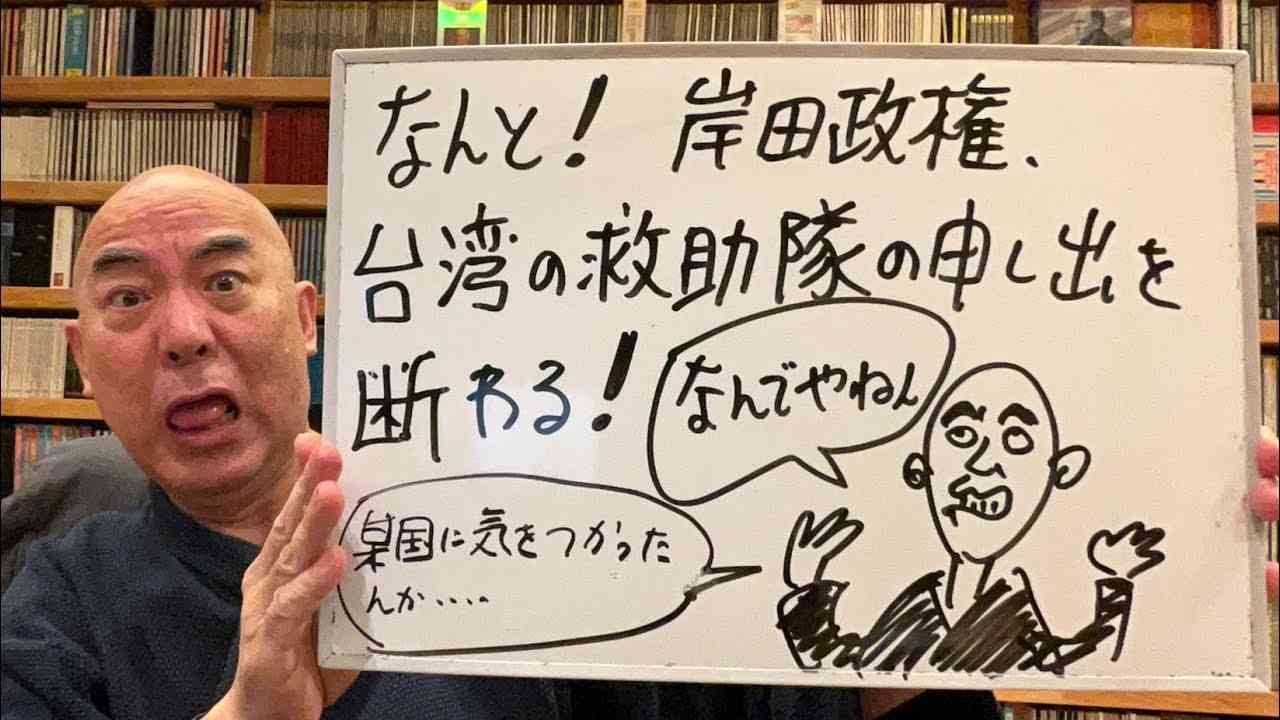 なんと! 岸田政権、
台湾の救助隊の申し出を
断わる!
なんでやねん
某国に気をつかった
んか....